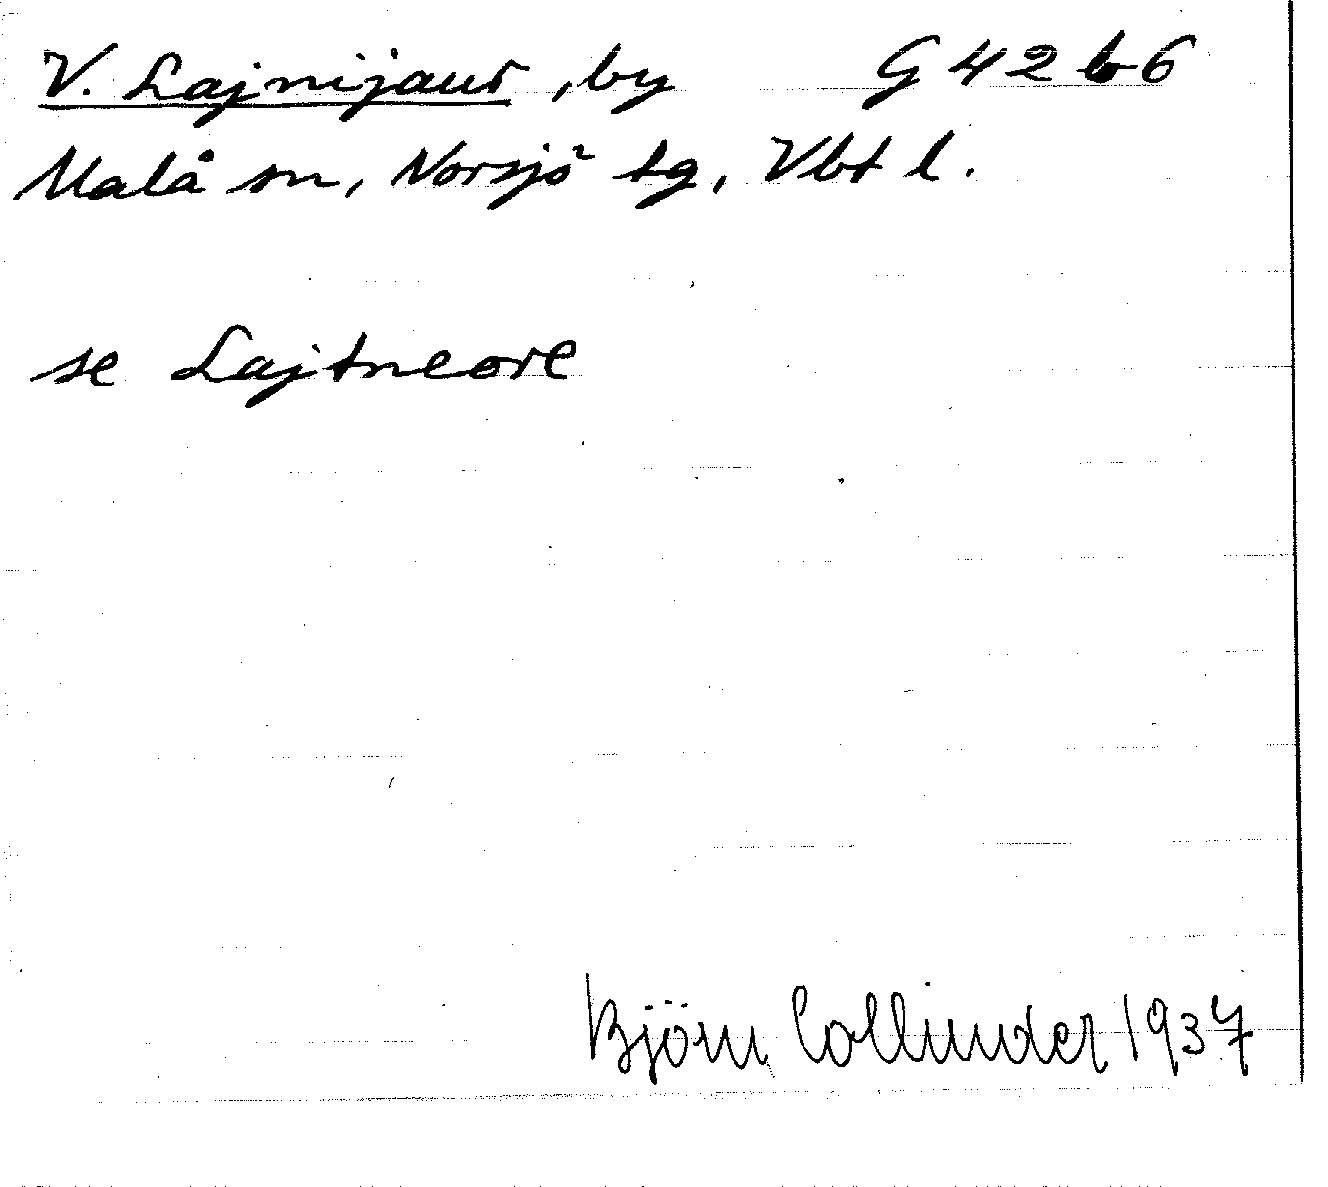 V. Lajnijaur, by G 42 b 6
Malå sn, Norsjö tg, Vbt l.
se Lajtneore
Björn Collinder 1937